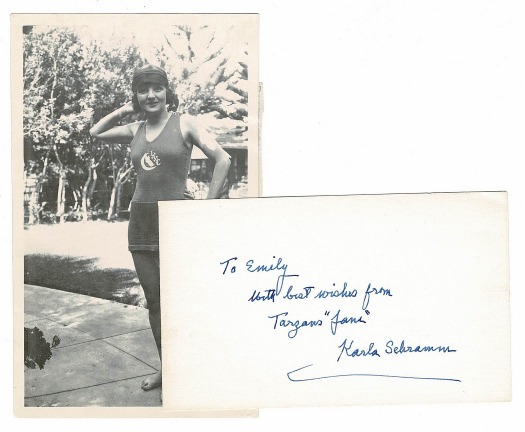 To Emily
With best wishes from
Tarzans "Jane"
Karla Schramm